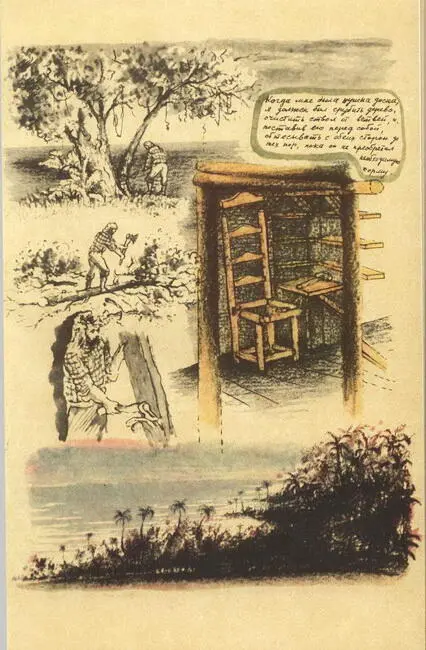 Когда мне была нужна доска,
я должен был срубить дерево,
очистить ствол от ветвей и,
поставив его перед собой,
обтесывать с обеих сторон до
тех пор, пока он не приобретал
необходимую
форму